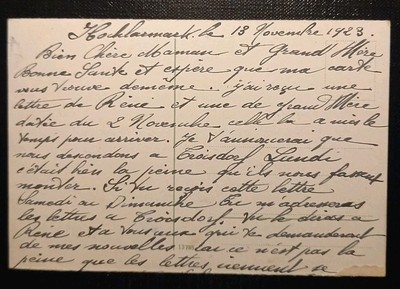 Hochlarmark, le 13 Novembre 1923.
Bien Chère Maman et Grand Mère
Bonne Santé et espère que ma carte
vous trouve de meme. j'ai reçu une
lettre de Réné et une de grand Mère
datée du 2 Novembre celle là a mis le
temps pour arriver. Je t'annoncerai que
nous descendons a Troisdorf Lundi
c'était bien la peine qu'ils nous fassent
monter. Si tu reçois cette lettre
Samedi ou Dimanche Tu m'adresseras
les lettres a Troisdorf. Tu le diras a
Réné et a vous qui te demanderont
de mes nouvelles car ce n'est pas la
peine que les lettres viennent se